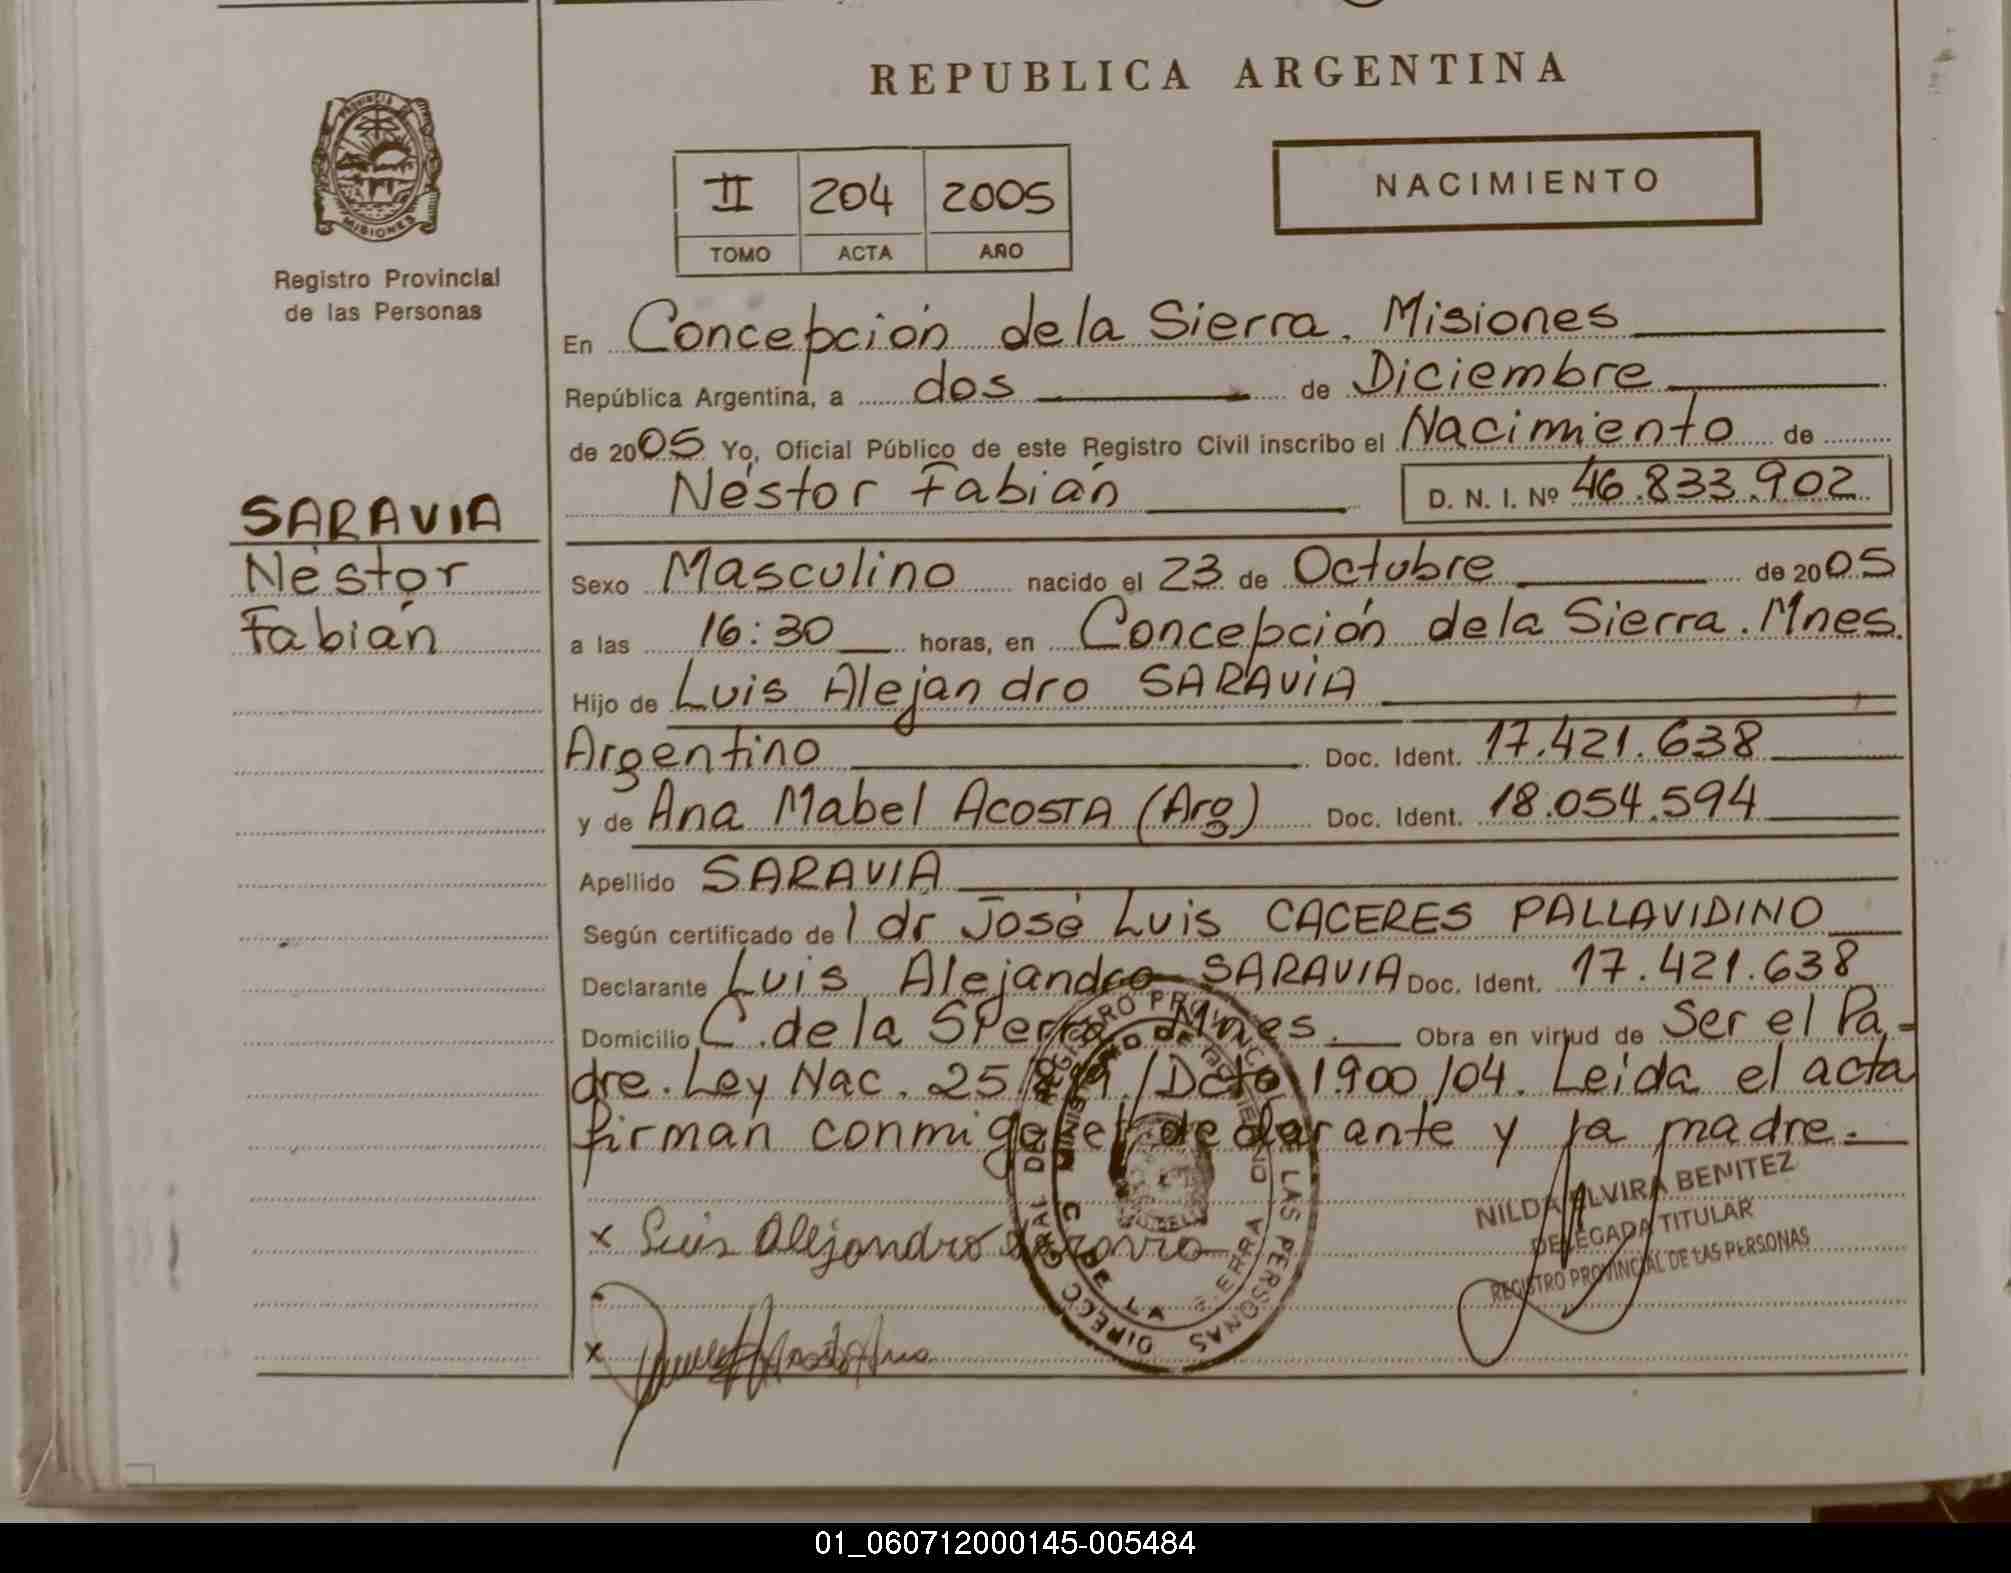 REPUBLICA ARGENTINA
NACIMIENTO
PROVINCIA DE
MISIONES
Registro Provincial
de las Personas
II 204 2005
TOMO ACTA AÑO
En Concepción de la Sierra. Misiones
República Argentina, a dos de Diciembre
de 2005 Yo, Oficial Público de este Registro Civil inscribo el Nacimiento de
Néstor Fabián D. N. I. Nº 46.833.902
SARAVIA
Néstor
Fabián
Sexo Masculino nacido el 23 de Octubre de 2005
a las 16:30 horas, en Concepción de la Sierra. Mnes.
Hijo de Luis Alejandro SARAVIA
Argentino Doc. Ident. 17.421.638
y de Ana Mabel ACOSTA (Arg) Doc. Ident. 18.054.594
Apellido SARAVIA
Según certificado de l dr José Luis CACERES PALLAVIDINO
Declarante Luis Alejandro SARAVIA Doc. Ident. 17.421.638
Domicilio C. de la Sierra Mnes. Obra en virtud de Ser el Pa-
dre. Ley Nac. 25.819/Dcto 1900/04. Leida el acta
firman conmigo el declarante y la madre.
x Luis Alejandro Saravia
x
DIRECC. GRAL. DEL REGISTRO PROVINCIAL DE LAS PERSONAS
MINISTERIO DE GOBIERNO
C. DE LA SIERRA
NILDA ELVIRA BENITEZ
DELEGADA TITULAR
REGISTRO PROVINCIAL DE LAS PERSONAS
01_060712000145-005484